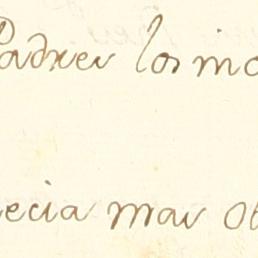 Padres los mo
ecia mas ob